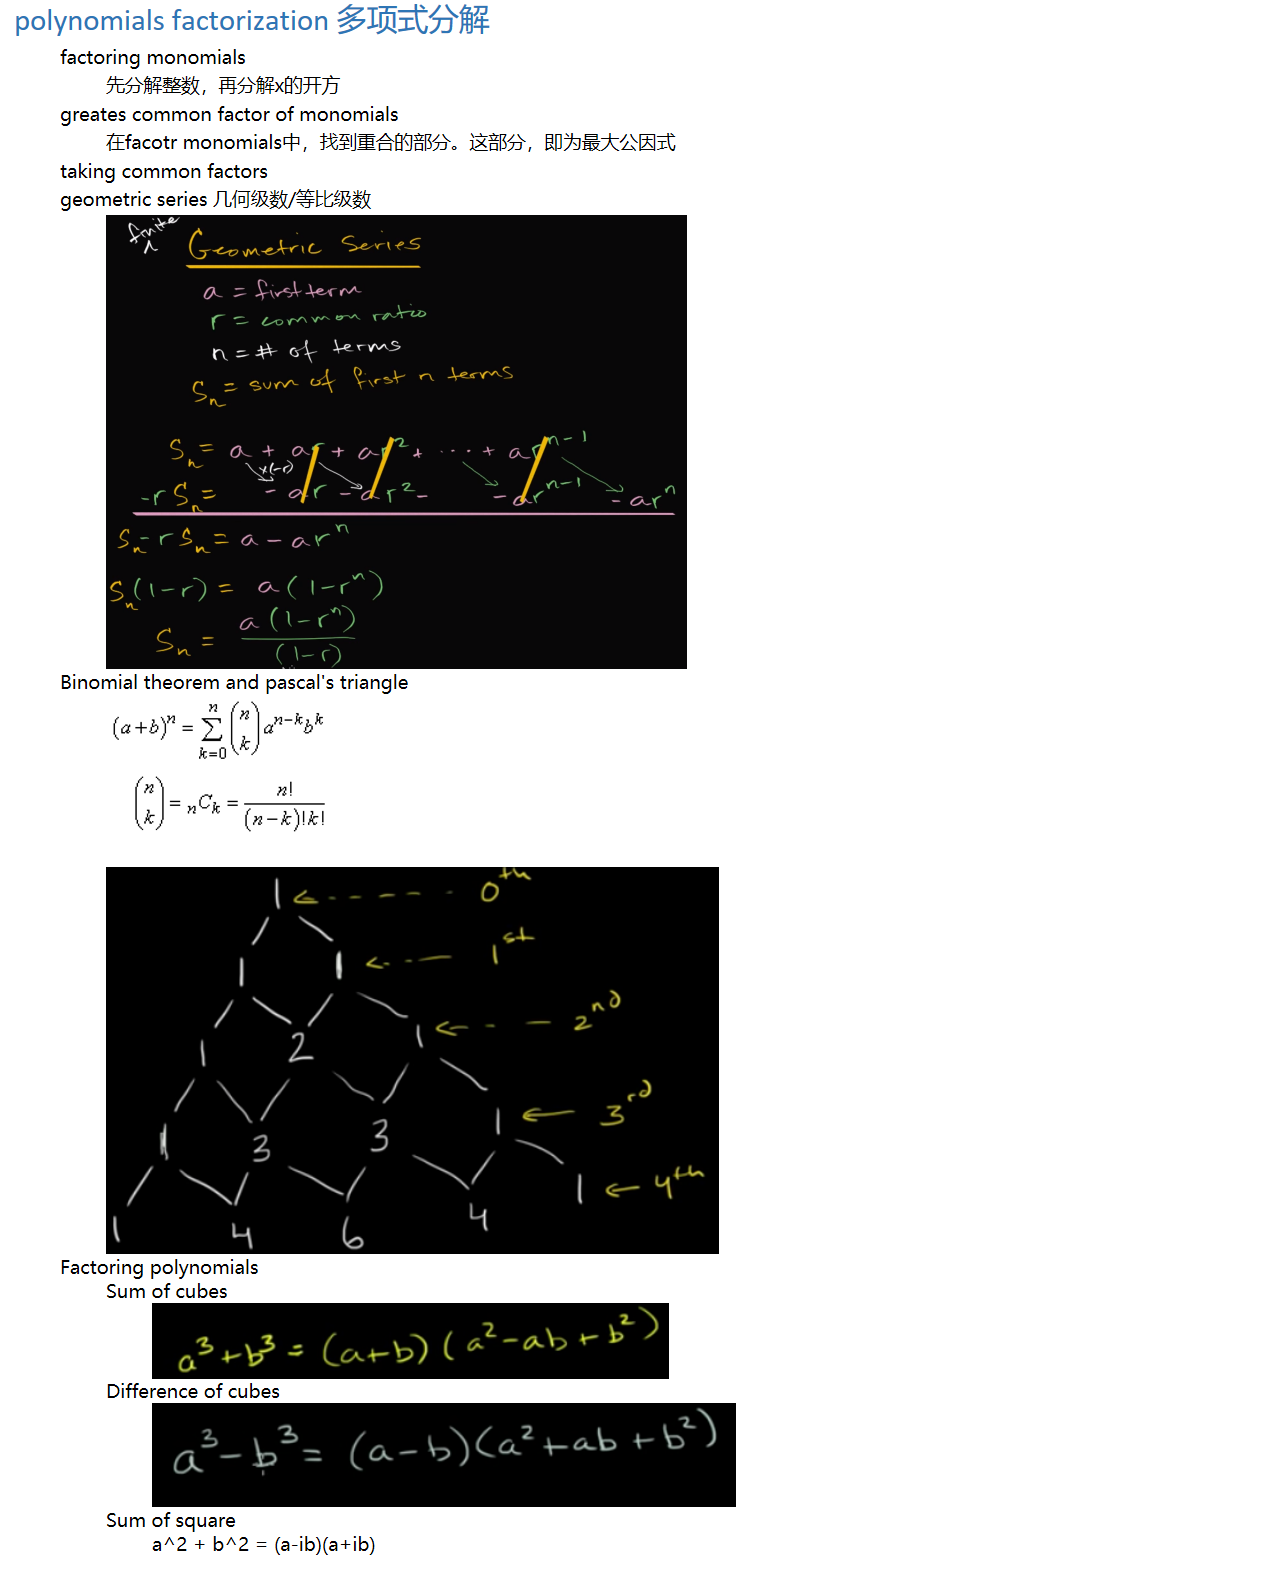 polynomials factorization 多项式分解
factoring monomials
先分解整数，再分解x的开方
greates common factor of monomials
在facotr monomials中，找到重合的部分。这部分，即为最大公因式
taking common factors
geometric series 几何级数/等比级数
finite
Geometric Series
a = first term
r = common ratio
n = # of terms
Sₙ = sum of first n terms
Sₙ = a + ar + ar² + ··· + arⁿ⁻¹
x(-r)
-r Sₙ = - ar - ar² - - arⁿ⁻¹ - arⁿ
Sₙ - r Sₙ = a - arⁿ
Sₙ(1-r) = a(1-rⁿ)
Sₙ = a(1-rⁿ) / (1-r)
Binomial theorem and pascal's triangle
(a+b)ⁿ = ∑ₖ₌₀ⁿ (n k) aⁿ⁻ᵏbᵏ
(n k) = ₙCₖ = n! / (n-k)!k!
1 ← 0th
1 1 ← 1st
1 2 1 ← 2nd
1 3 3 1 ← 3rd
1 4 6 4 1 ← 4th
Factoring polynomials
Sum of cubes
a³+b³ = (a+b)(a²-ab+b²)
Difference of cubes
a³-b³ = (a-b)(a²+ab+b²)
Sum of square
a^2 + b^2 = (a-ib)(a+ib)